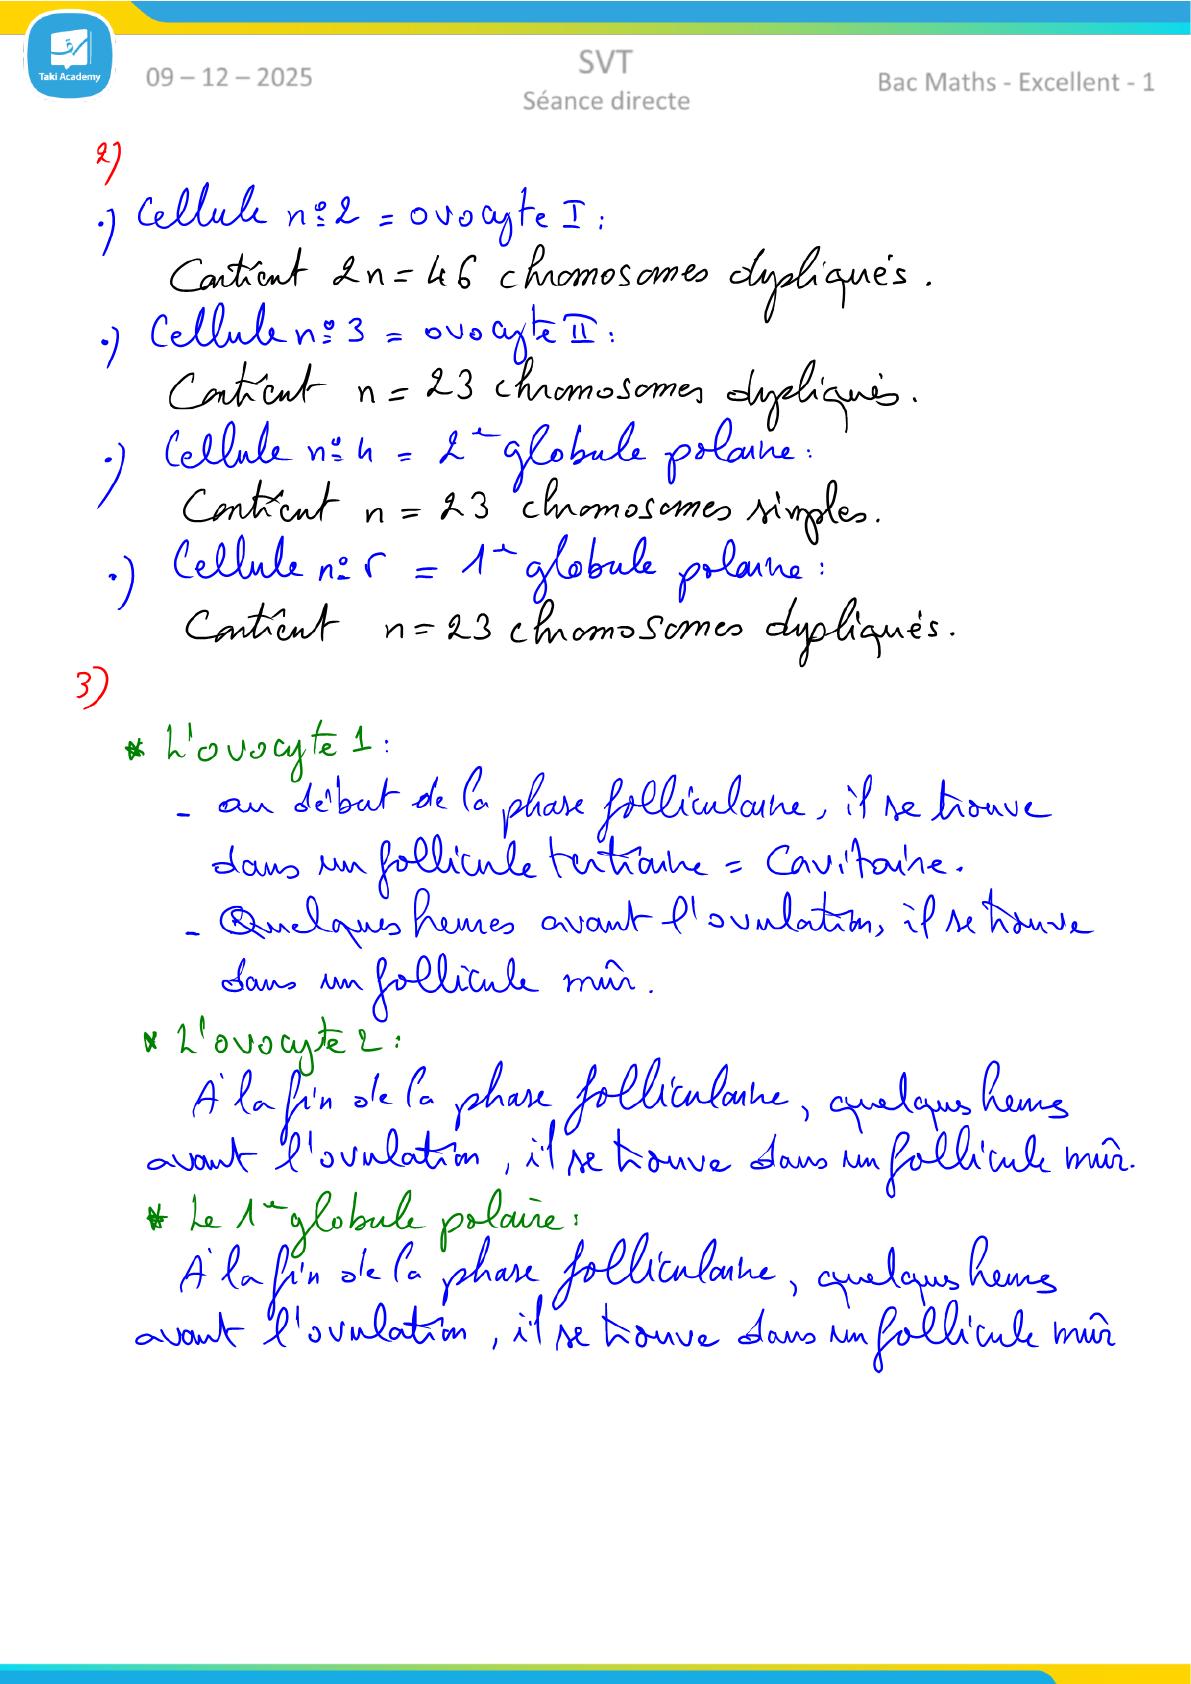 Taki Academy
09 – 12 – 2025
SVT
Séance directe
Bac Maths - Excellent - 1
2)
.) Cellule n°2 = ovocyte I :
Contient 2n = 46 chromosomes dypliqués.
.) Cellule n°3 = ovocyte II :
Contient n = 23 chromosomes dypliqués.
.) Cellule n°4 = 2e globule polaire :
Contient n = 23 chromosomes simples.
.) Cellule n°5 = 1e globule polaire :
Contient n = 23 chromosomes dypliqués.
3)
* L'ovocyte 1 :
- au début de la phase folliculaire, il se trouve
dans un follicule tertiaire = Cavitaire.
- Quelques heures avant l'ovulation, il se trouve
dans un follicule mûr.
* L'ovocyte 2 :
A la fin de la phase folliculaire, quelques heures
avant l'ovulation, il se trouve dans un follicule mûr.
* Le 1e globule polaire :
A la fin de la phase folliculaire, quelques heures
avant l'ovulation, il se trouve dans un follicule mûr